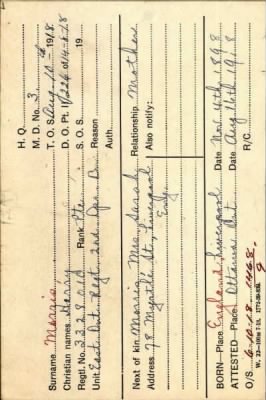 H. Q.
M. D. No. 3.
Surname Morris T. O. S. Aug. 10th 1918.
Christian names Harry D. O. Pt. II/226 of 14-8-18
Regtl. No. 3328210 Rank Pte. S. O. S. 19
Unit East. Ont. Regt. 2nd. Dpo. Bn. Reason
Auth.
Next of kin Morris, Mrs. Sarah Relationship Mother
Address 78 Myrtle St., Liverpool Also notify:
Eng.
BORN—Place England, Liverpool Date Nov. 4th 1898
ATTESTED—Place Ottawa Ont. Date Aug 16th 1918
O/S 6-10-18 1468 R/C
9